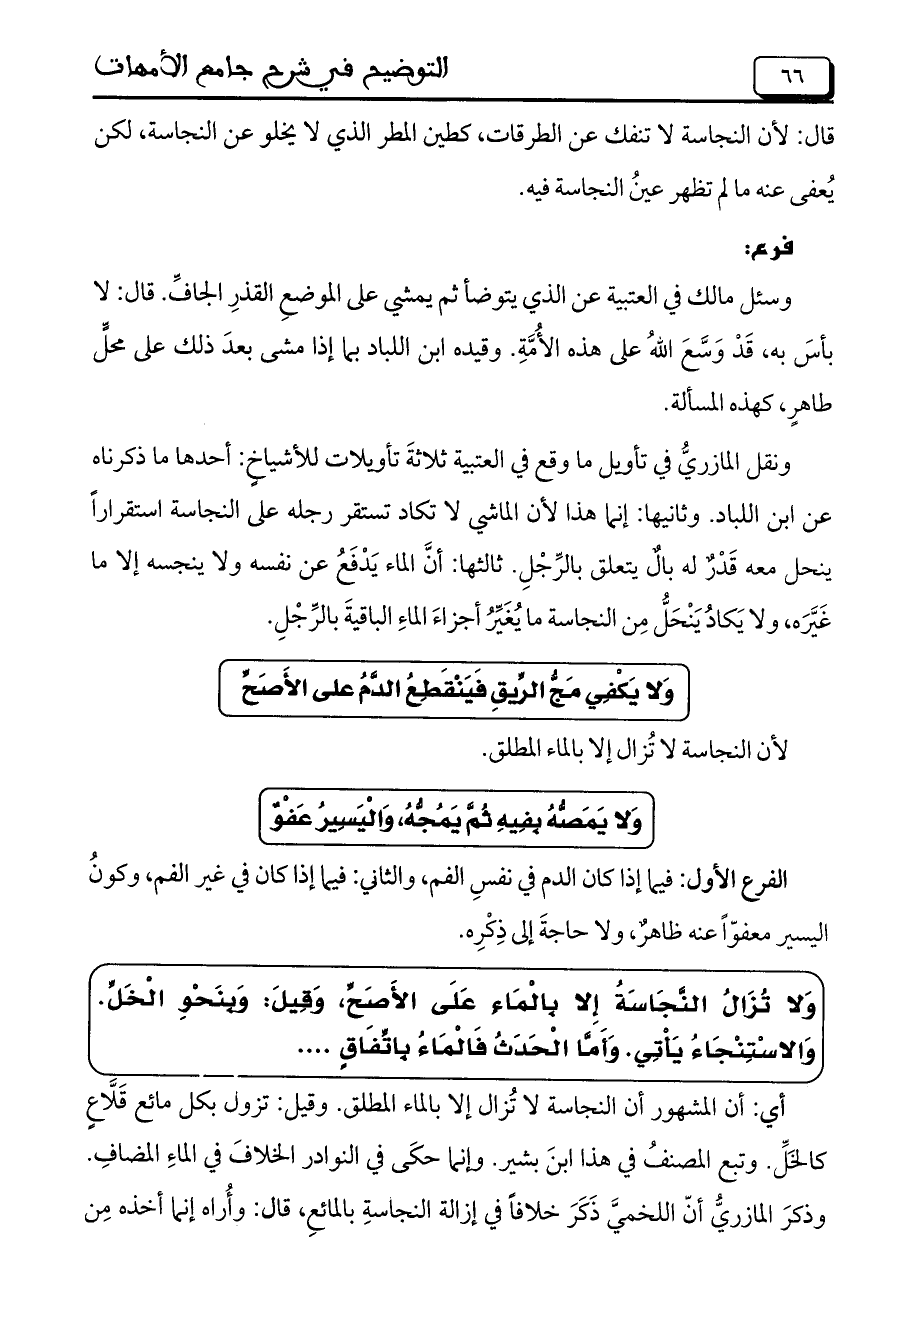 ٦٦
التوضيح في شرح جامع الأمهات
قال: لأن النجاسة لا تنفك عن الطرقات، كطين المطر الذي لا يخلو عن النجاسة، لكن
يُعفى عنه ما لم تظهر عينُ النجاسة فيه.
فرع:
وسئل مالك في العتبية عن الذي يتوضأ ثم يمشي على الموضعِ القذرِ الجافِّ. قال: لا
بأسَ به، قَدْ وَسَّعَ اللهُ على هذه الأُمَّةِ. وقيده ابن اللباد بما إذا مشى بعدَ ذلك على محلٍّ
طاهرٍ، كهذه المسألة.
ونقل المازريُّ في تأويل ما وقع في العتبية ثلاثةَ تأويلات للأشياخ: أحدها ما ذكرناه
عن ابن اللباد. وثانيها: إنما هذا لأن الماشي لا تكاد تستقر رجله على النجاسة استقراراً
ينحل معه قَدْرٌ له بالٌ يتعلق بالرِّجْلِ. ثالثها: أنَّ الماء يَدْفَعُ عن نفسه ولا ينجسه إلا ما
غَيَّرَه، ولا يَكادُ يَنْحَلُّ مِن النجاسة ما يُغَيِّرُ أجزاءَ الماءِ الباقيةَ بالرِّجْلِ.
وَلا يَكْفِي مَجُّ الرِّيقِ فَيَنْقَطِعُ الدَّمُ على الأَصَحِّ
لأن النجاسة لا تُزال إلا بالماء المطلق.
وَلا يَمَصُّهُ بِفِيهِ ثُمَّ يَمُجُّهُ، وَالْيَسِيرُ عَفْوٌ
الفرع الأول: فيما إذا كان الدم في نفسِ الفم، والثاني: فيما إذا كان في غير الفم، وكونُ
اليسير معفوّاً عنه ظاهرٌ، ولا حاجةَ إلى ذِكْرِه.
وَلا تُزَالُ النَّجَاسَةُ إِلا بِالْمَاءِ عَلَى الأَصَحِّ، وَقِيلَ: وَبِنَحْوِ الْخَلِّ.
وَالاسْتِنْجَاءُ يَأْتِي. وَأَمَّا الْحَدَثُ فَالْمَاءُ بِاتِّفَاقٍ ....
أي: أن المشهور أن النجاسة لا تُزال إلا بالماء المطلق. وقيل: تزول بكل مائع قَلَّاعٍ
كالخَلِّ. وتبع المصنفُ في هذا ابنَ بشير. وإنما حكَى في النوادر الخلافَ في الماءِ المضافِ.
وذكرَ المازريُّ أنّ اللخميَّ ذَكَرَ خلافاً في إزالة النجاسةِ بالمائعِ، قال: وأُراه إنما أخذه مِن